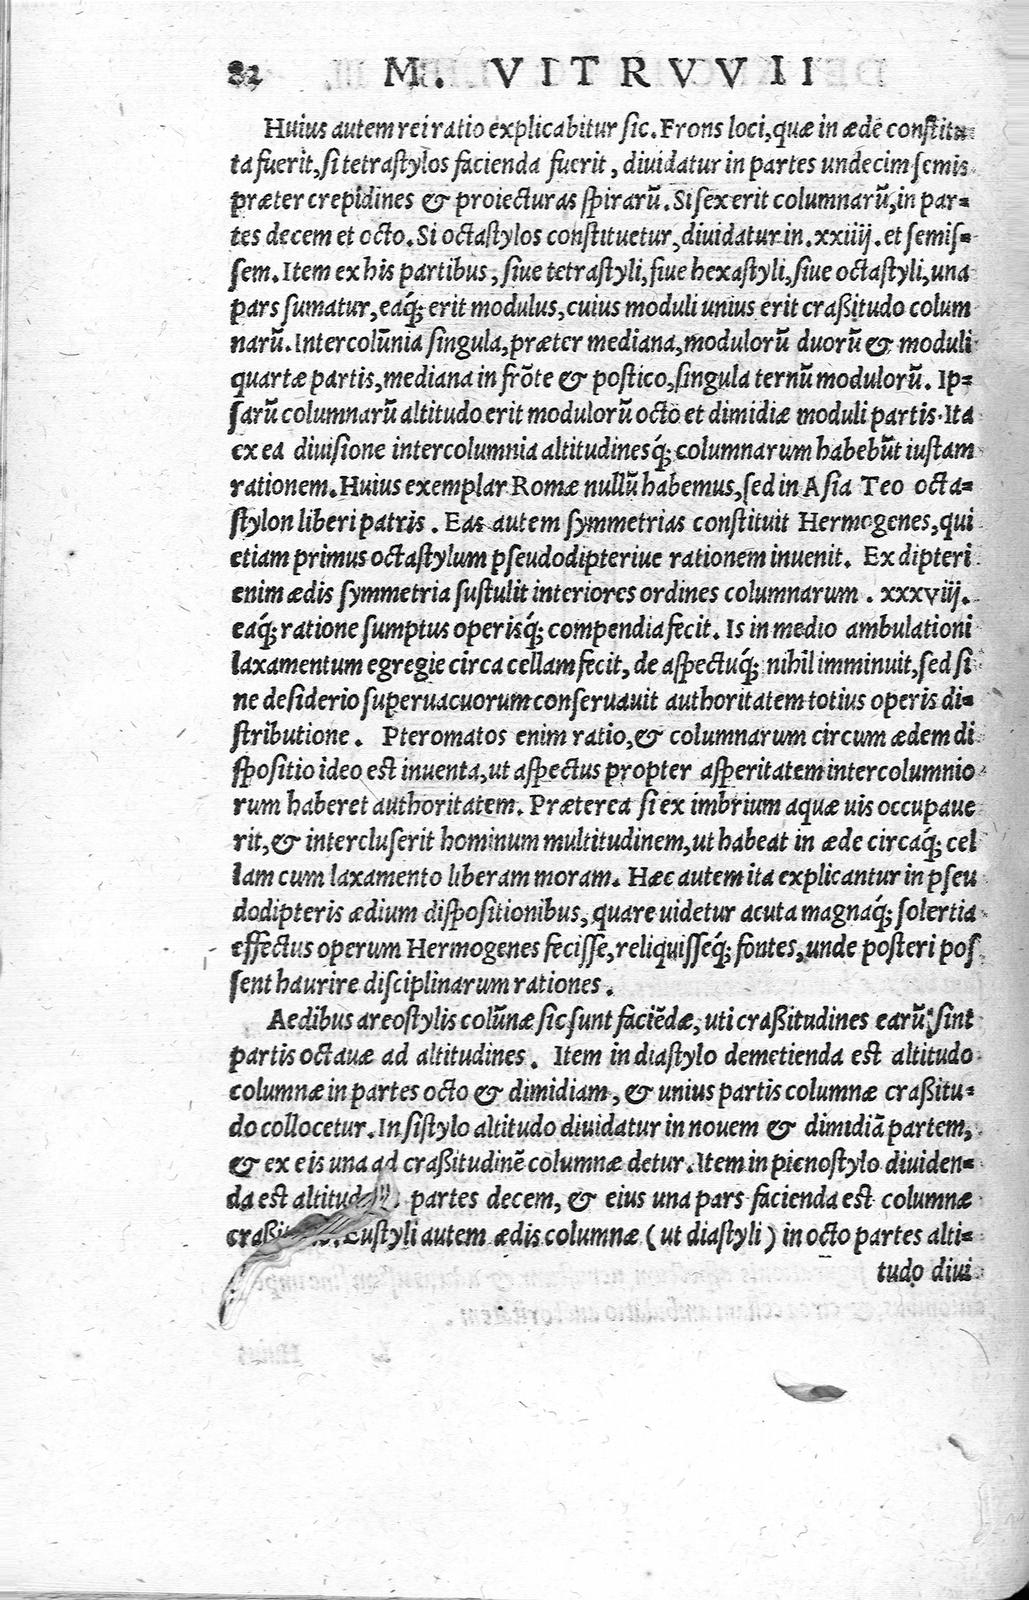 82 M. VITRVVII
Huius autem rei ratio explicabitur sic. Frons loci, quæ in ædē constitu
ta fuerit, si tetrastylos facienda fuerit, diuidatur in partes undecim semis
præter crepidines & proiecturas spirarū. Si sex erit columnarū, in par=
tes decem et octo. Si octastylos constituetur, diuidatur in .xxiiij. et semis=
sem. Item ex his partibus, siue tetrastyli, siue hexastyli, siue octastyli, una
pars sumatur, eaq́; erit modulus, cuius moduli unius erit craßitudo colum
narū. Intercolūnia singula, præter mediana, modulorū duorū & moduli
quartæ partis, mediana in frōte & postico, singula ternū modulorū. Ip=
sarū columnarū altitudo erit modulorū octo et dimidiæ moduli partis. Ita
ex ea diuisione intercolumnia altitudinesq́; columnarum habebūt iustam
rationem. Huius exemplar Romæ nullū habemus, sed in Asia Teo octa=
stylon liberi patris. Eas autem symmetrias constituit Hermogenes, qui
etiam primus octastylum pseudodipteriue rationem inuenit. Ex dipteri
enim ædis symmetria sustulit interiores ordines columnarum .xxxviij.
eaq́; ratione sumptus operisq́; compendia fecit. Is in medio ambulationi
laxamentum egregie circa cellam fecit, de aspectuq́; nihil imminuit, sed si
ne desiderio superuacuorum conseruauit authoritatem totius operis di=
stributione. Pteromatos enim ratio, & columnarum circum ædem di
spositio ideo est inuenta, ut aspectus propter asperitatem intercolumnio
rum haberet authoritatem. Præterea si ex imbrium aquæ uis occupaue
rit, & intercluserit hominum multitudinem, ut habeat in æde circaq́; cel
lam cum laxamento liberam moram. Hæc autem ita explicantur in pseu
dodipteris ædium dispositionibus, quare uidetur acuta magnaq́; solertia
effectus operum Hermogenes fecisse, reliquisseq́; fontes, unde posteri pos
sent haurire disciplinarum rationes.
Aedibus areostylis colūnæ sic sunt faciēdæ, uti craßitudines earū, sint
partis octauæ ad altitudines. Item in diastylo demetienda est altitudo
columnæ in partes octo & dimidiam, & unius partis columnæ craßitu=
do collocetur. In sistylo altitudo diuidatur in nouem & dimidiā partem,
& ex eis una ad craßitudinē columnæ detur. Item in picnostylo diuiden=
da est altitudo partes decem, & eius una pars facienda est columnæ
Eustyli autem ædis columnæ (ut diastyli) in octo partes alti=
tudo diui